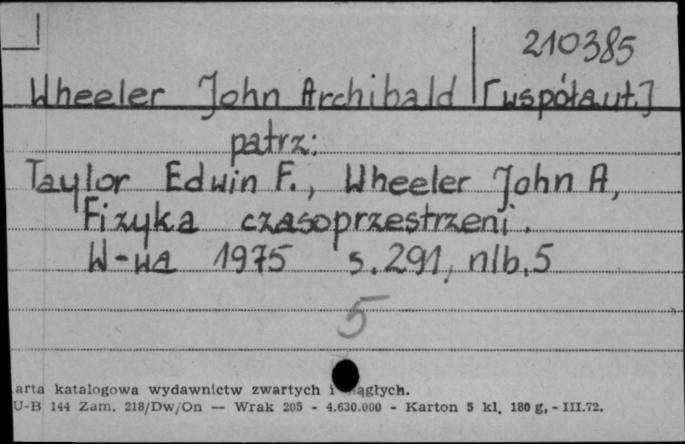 210385
Wheeler John Archibald [współaut.]
patrz:
Taylor Edwin F., Wheeler John A,
Fizyka czasoprzestrzeni.
W-wa 1975 s. 291, nlb. 5
5
arta katalogowa wydawnictw zwartych i iągłych.
U-B 144 Zam. 218/Dw/On — Wrak 205 - 4.630.000 - Karton 5 kl. 180 g, - III.72.